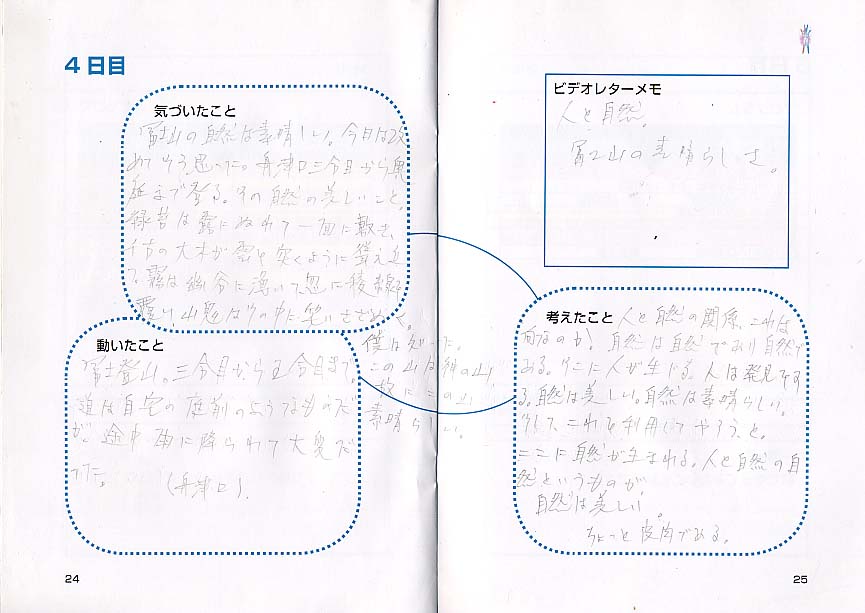 4日目
気づいたこと
富士山の自然は素晴しい。今日は改
めてそう思った。舟津口三合目から奥
庭まで登る。その自然の美しいこと。
緑苔は露にぬれて一面に敷き、
千古の大木が雲を突くように聳え立
つ。霧は幽谷に漂いて忽に稜線を
覆い、山鬼はその中に笑いさざめく。
動いたこと
富士登山。三合目から五合目まで。
道は自宅の庭前のようなものだ
が、途中雨に降られて大臭だ
った。
(舟津口).
僕は知った。
この山は神の山、
故にこの山
素晴らしい。
ビデオレターメモ
人と自然。
富士山の素晴らしさ。
考えたこと 人と自然の関係、これは
何なのか。自然は自然であり自然で
ある。そこに人が生じる。人は発見をす
る。自然は美しい。自然は素晴らしい。
そして、これを利用してやろう、と。
ここに自然が生まれる。人と自然の自
然というものが。
自然は美しい。
ちょっと皮肉である。
24
25